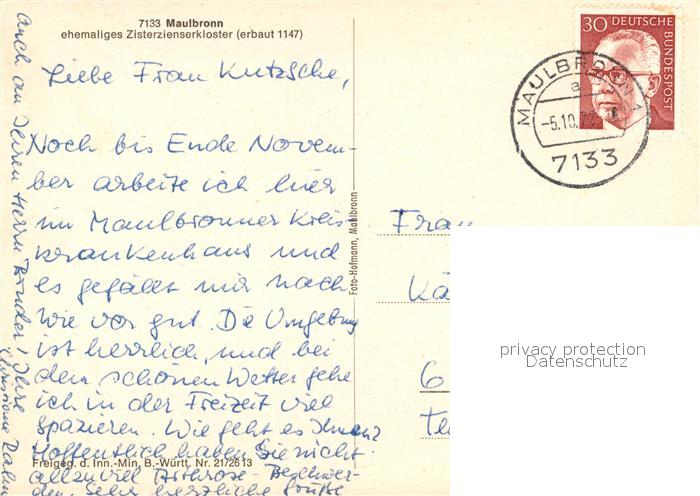 7133 Maulbronn
ehemaliges Zisterzienserkloster (erbaut 1147)
Liebe Frau Kutzsche,
Noch bis Ende Novem-
ber arbeite ich hier
im Maulbronner Kreis-
krankenhaus und
es gefällt mir nach
wie vor gut. Die Umgebung
ist herrlich, und bei
dem schönen Wetter gehe
ich in der Freizeit viel
spazieren. Wie geht es Ihnen?
Hoffentlich haben Sie nicht
allzuviel Arthrose-Beschwer-
den. Sehr herzliche Grüße
auch an Ihren Herrn Bruder! Ihre
Freigeg. d. Inn.-Min. B.-Württ. Nr. 21/2613
Foto-Hofmann, Maulbronn
30 DEUTSCHE
BUNDESPOST
MAULBRONN 1
a
-5.10.7
7133
Frau
Kä
6
privacy protection
Datenschutz